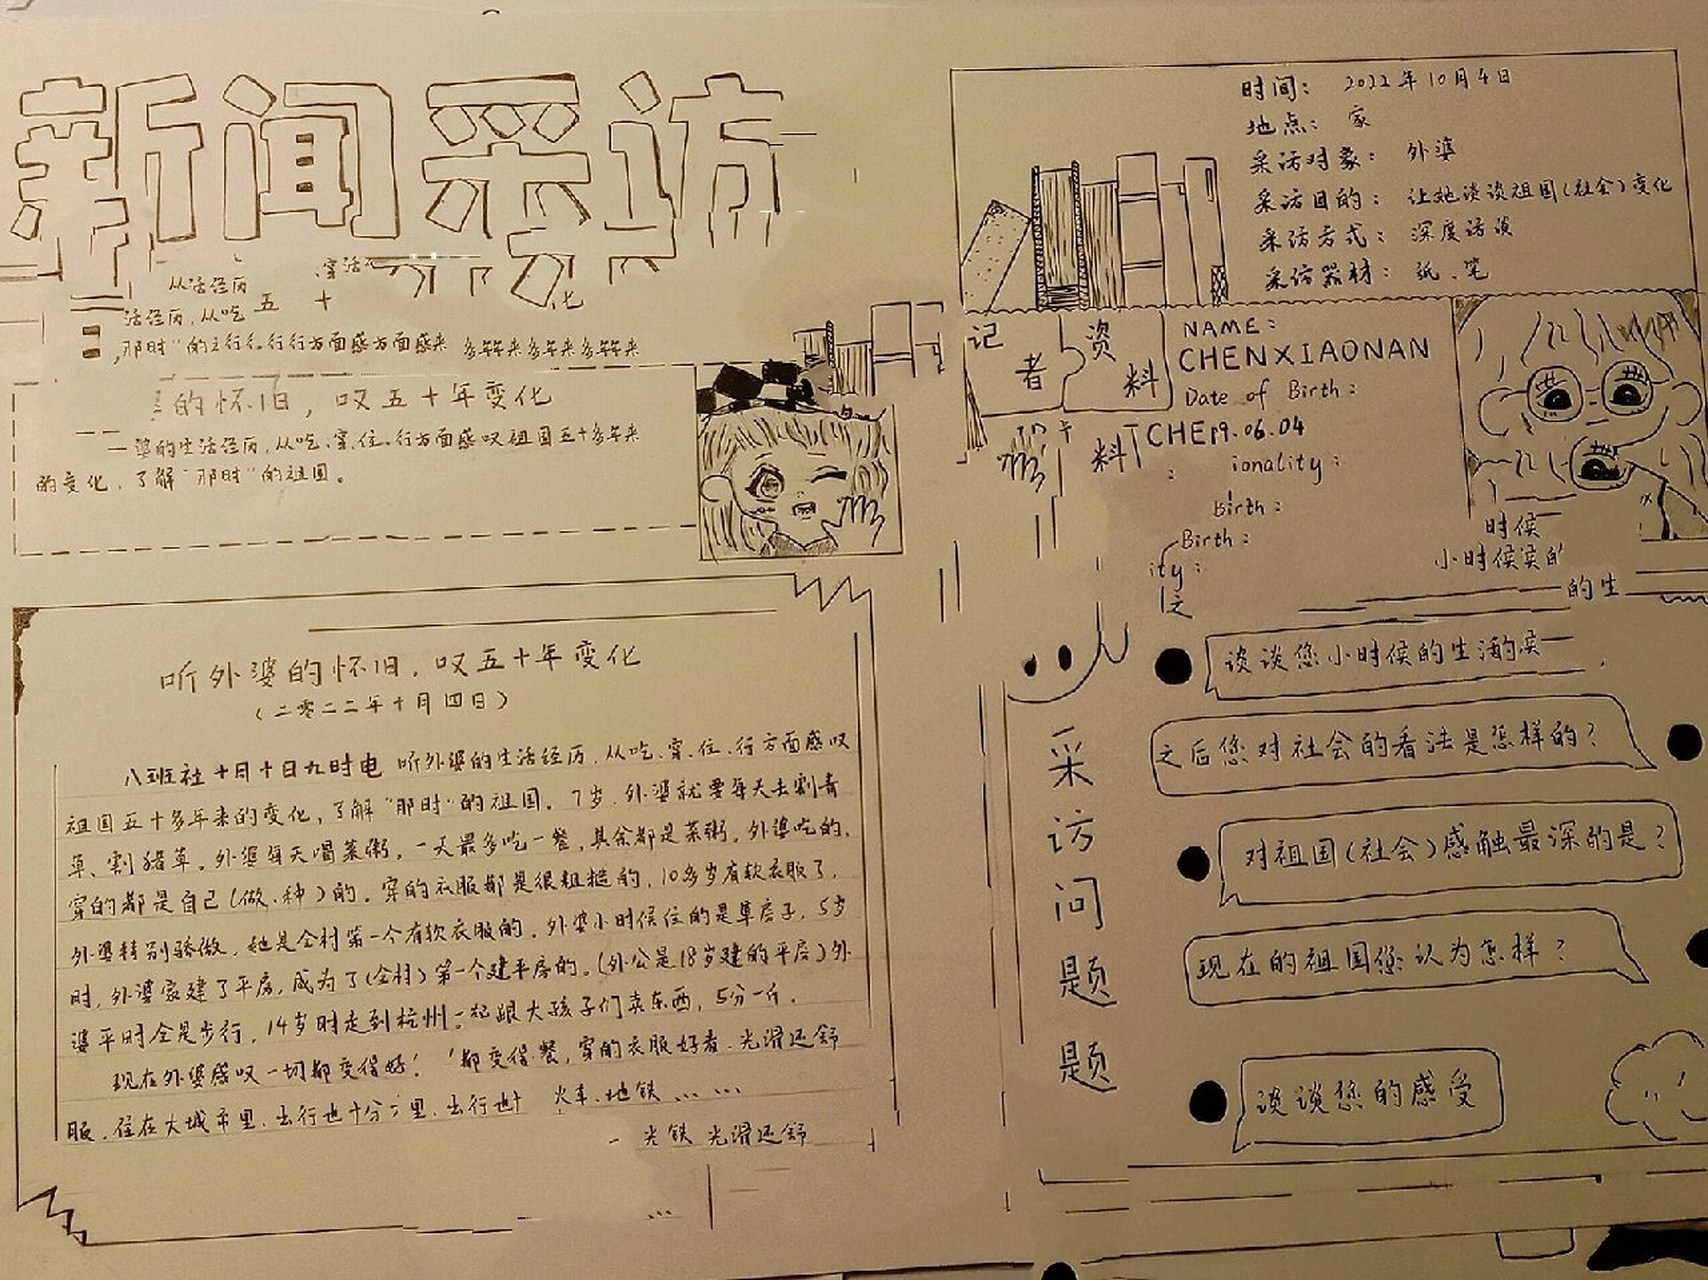 新闻采访
从活经历
活经历,从吃 五 十 化
,那时"的
多年来多年来多年来
的怀旧，叹五十年变化
婆的生活经历,从吃、穿、住、行方面感叹祖国五十多年来
的变化，了解"那时"的祖国。
听外婆的怀旧，叹五十年变化
(二零二二年十月四日)
八班社十月十日九时电 听外婆的生活经历,从吃、穿、住、行方面感叹
祖国五十多年来的变化,了解"那时"的祖国。7岁,外婆就要每天去割青
草、割猪草。外婆每天喝菜粥,一天最多吃一餐,其余都是菜粥。外婆吃的、
穿的都是自己(做、种)的。穿的衣服都是很粗糙的,10多岁有软衣服了,
外婆特别骄傲,她是全村第一个有软衣服的。外婆小时候住的是草房子,5岁
时,外婆家建了平房,成为了(全村)第一个建平房的。(外公是18岁建的平房)外
婆平时全是步行,14岁时走到杭州,一起跟大孩子们卖东西,5分一斤。
现在外婆感叹一切都变得好! 都变得 餐,穿的衣服好看、光滑还舒
服,住在大城市里,出行也十分 里,出行也十 火车、地铁……
光铁 光滑还舒
时间： 2022年10月4日
地点： 家
采访对象： 外婆
采访目的： 让她谈谈祖国(社会)变化
采访方式： 深度访谈
采访器材： 纸、笔
记者资料
NAME：
CHENXIAONAN
Date of Birth：
料 CHE 19.06.04
： ionality：
Birth：
Birth：
ity：
时候
小时候
的生
采访问题
谈谈您小时候的生活
之后您对社会的看法是怎样的？
对祖国(社会)感触最深的是？
现在的祖国您认为怎样？
谈谈您的感受